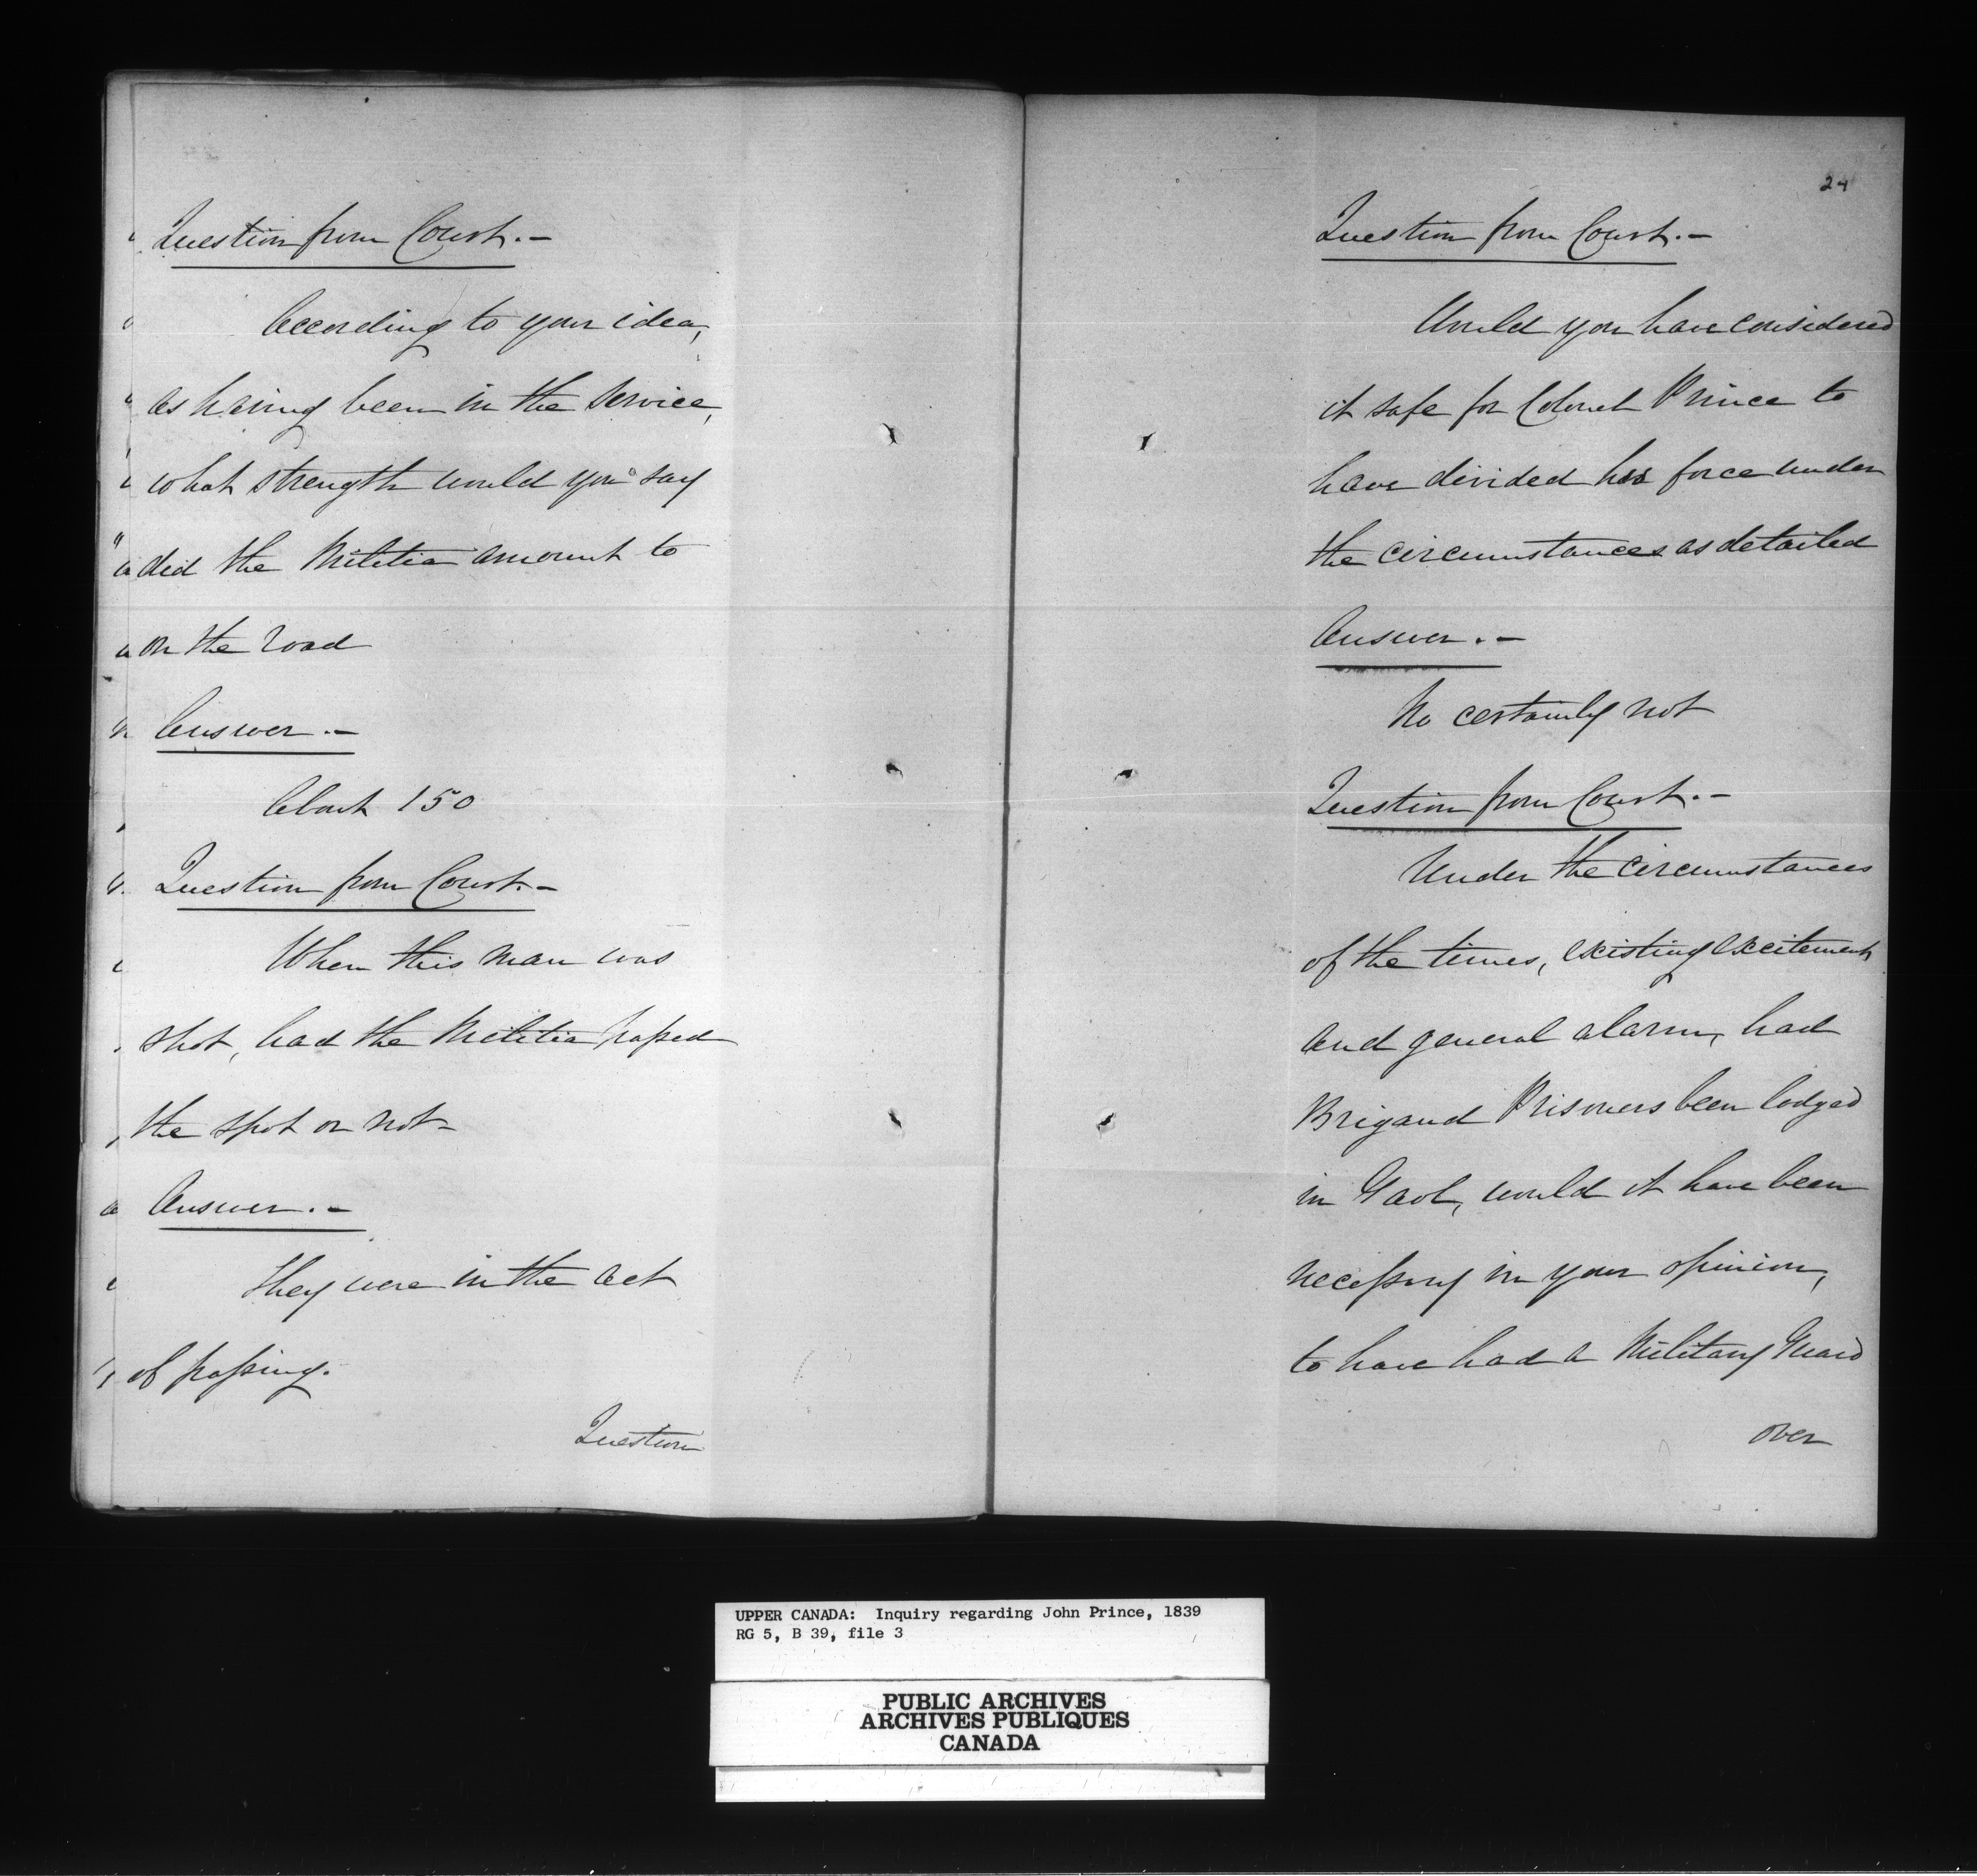 Question from Court.-
According to your idea,
as having been in the service,
what strength would you say
did the Militia amount to
on the road
Answer.-
About 150
Question from Court.-
When this man was
shot, had the Militia passed
the spot or not-
Answer.-
They were in the act
of passing.
Question
24
Question from Court.-
Would you have considered
it safe for Colonel Prince to
have divided his force under
the circumstances as detailed
Answer.-
No certainly not
Question from Court.-
Under the circumstances
of the times, existing excitement
and general alarm, had
Brigand Prisoners been lodged
in Gaol, would it have been
necessary in your opinion,
to have had a Military Guard
over
UPPER CANADA: Inquiry regarding John Prince, 1839
RG 5, B 39, file 3
PUBLIC ARCHIVES
ARCHIVES PUBLIQUES
CANADA